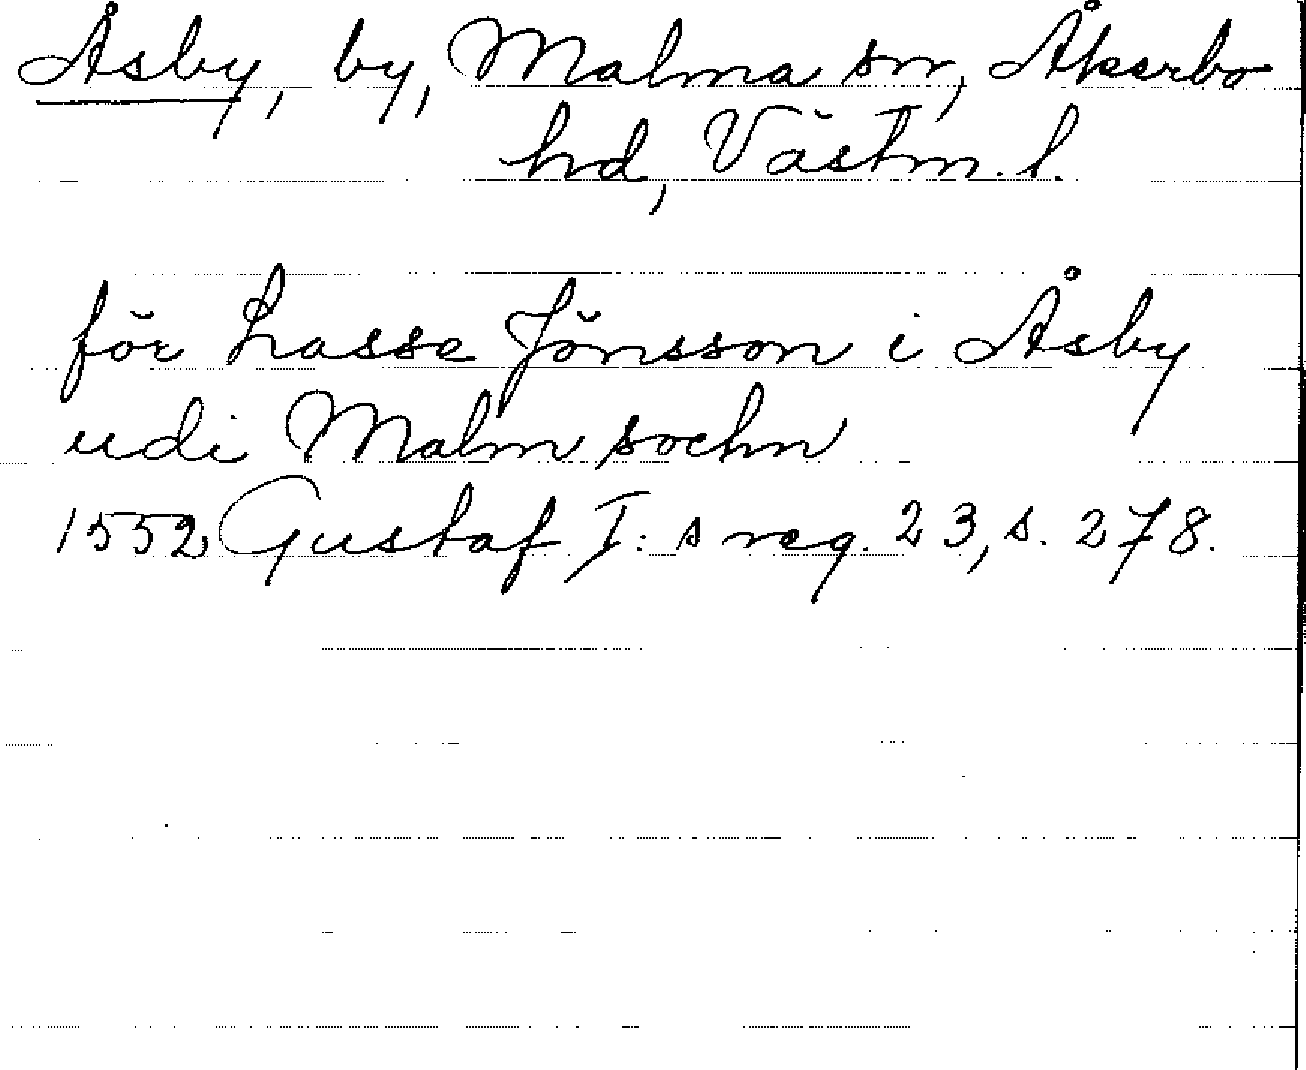 Åsby, by, Malma sn, Åkerbo
hd, Västm. l.
för Lasse Jönsson i Åsby
udi Malm sochn
1552 Gustaf I:s reg. 23, s. 278.